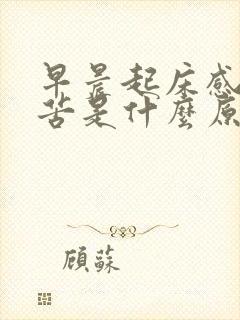 早晨起床感
苦是什麼原
顧蘇